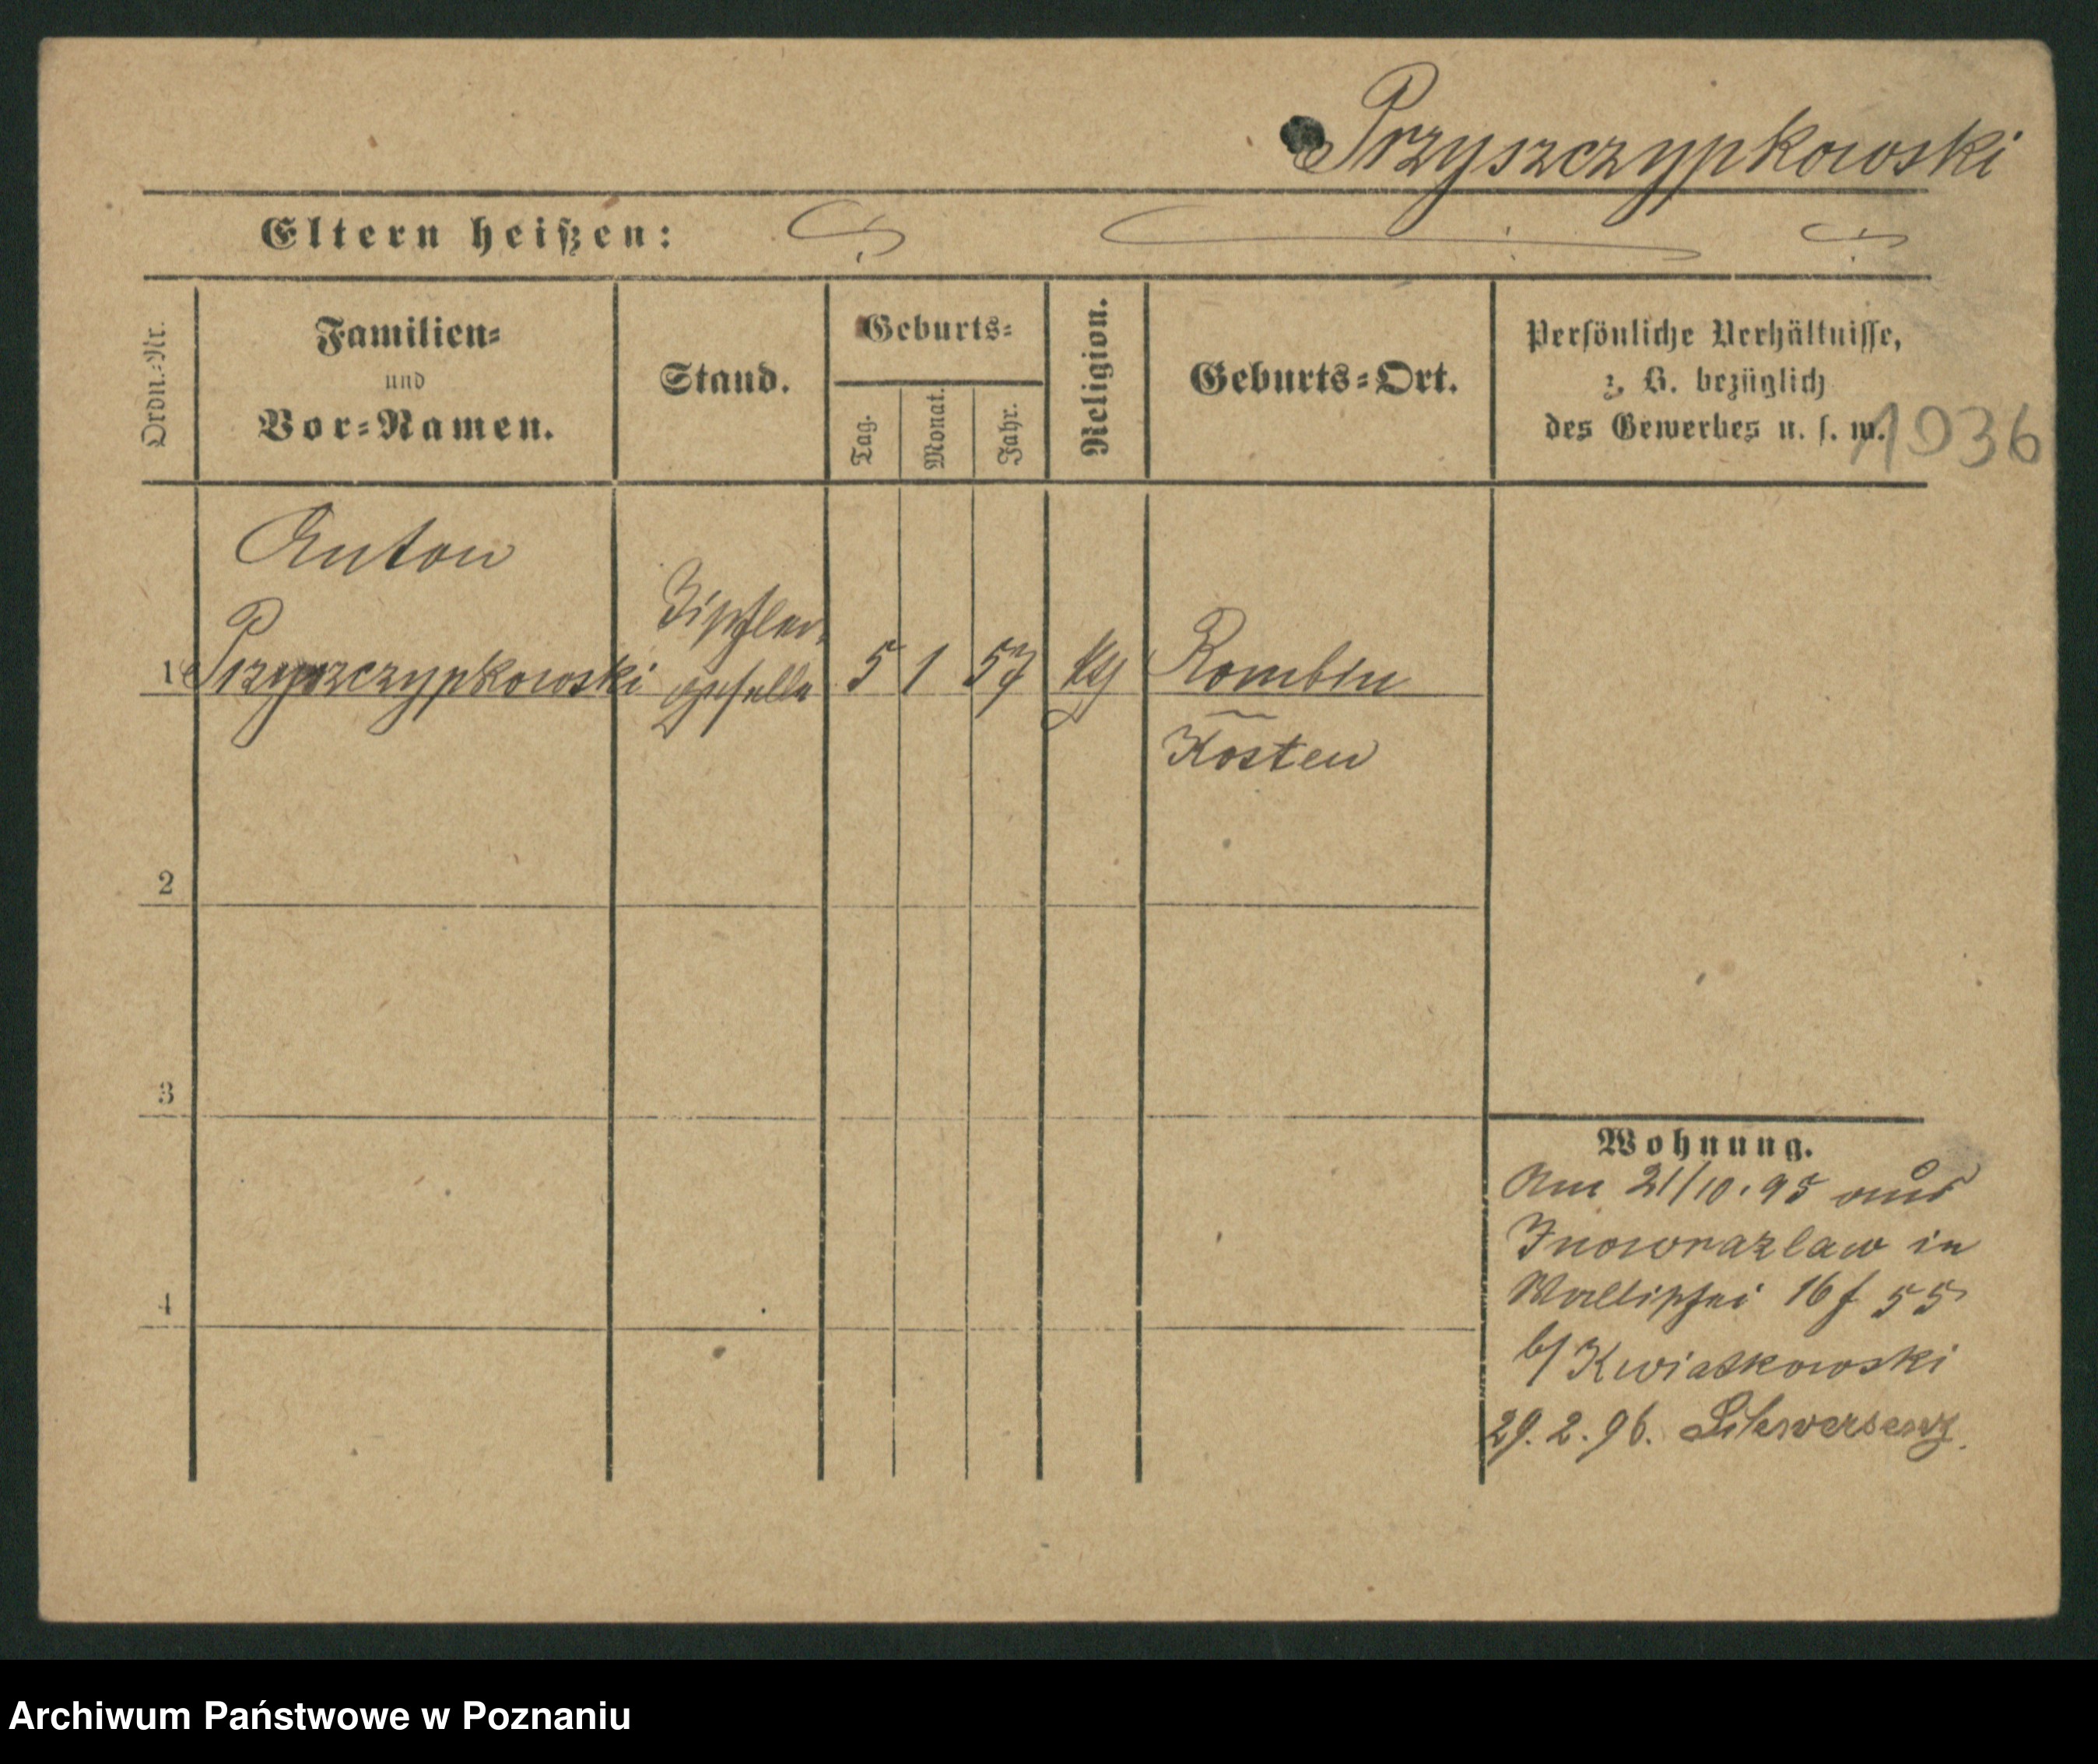 Przyszczypkowski
Eltern heißen:
Ordn.-Nr.
Familien-
und
Vor-Namen.
Stand.
Geburts-
Tag.
Monat.
Jahr.
Religion.
Geburts-Ort.
Persönliche Verhältnisse,
z. B. bezüglich
des Gewerbes u. s. w.
1036
Anton
1 Przyszczypkowski
geselle
5 1 57
Rombin
Kosten
2
3
4
Wohnung.
Am 21/10. 95 aus
Inowrazlaw in
Wallischei 16 f 55
b/ Kwiatkowski
29. 2. 96.
Archiwum Państwowe w Poznaniu